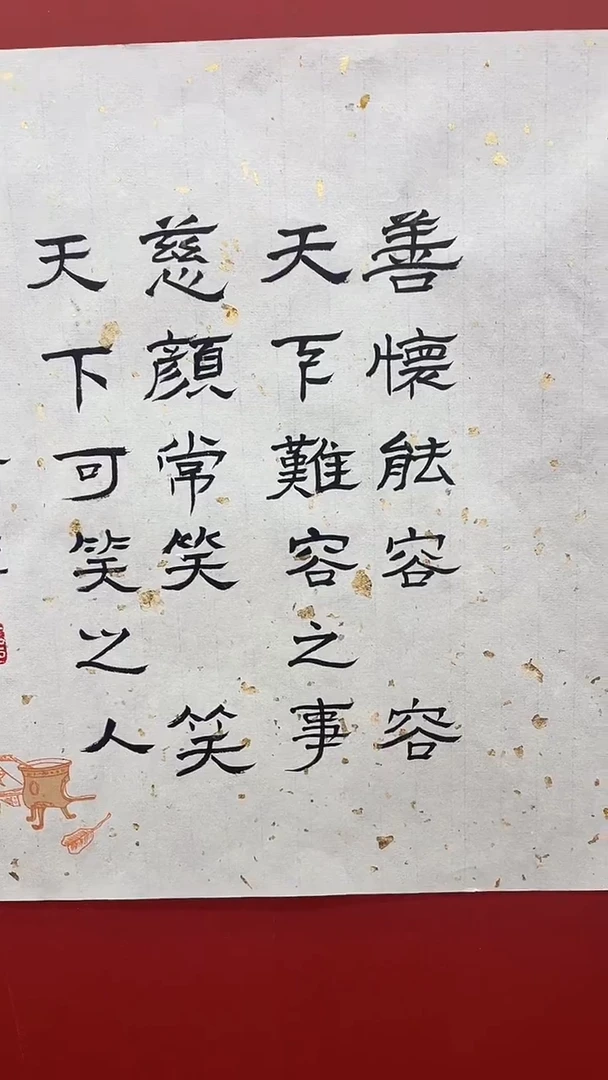 善懷能容容
天下難容之事
慈顏常笑笑
天下可笑之人